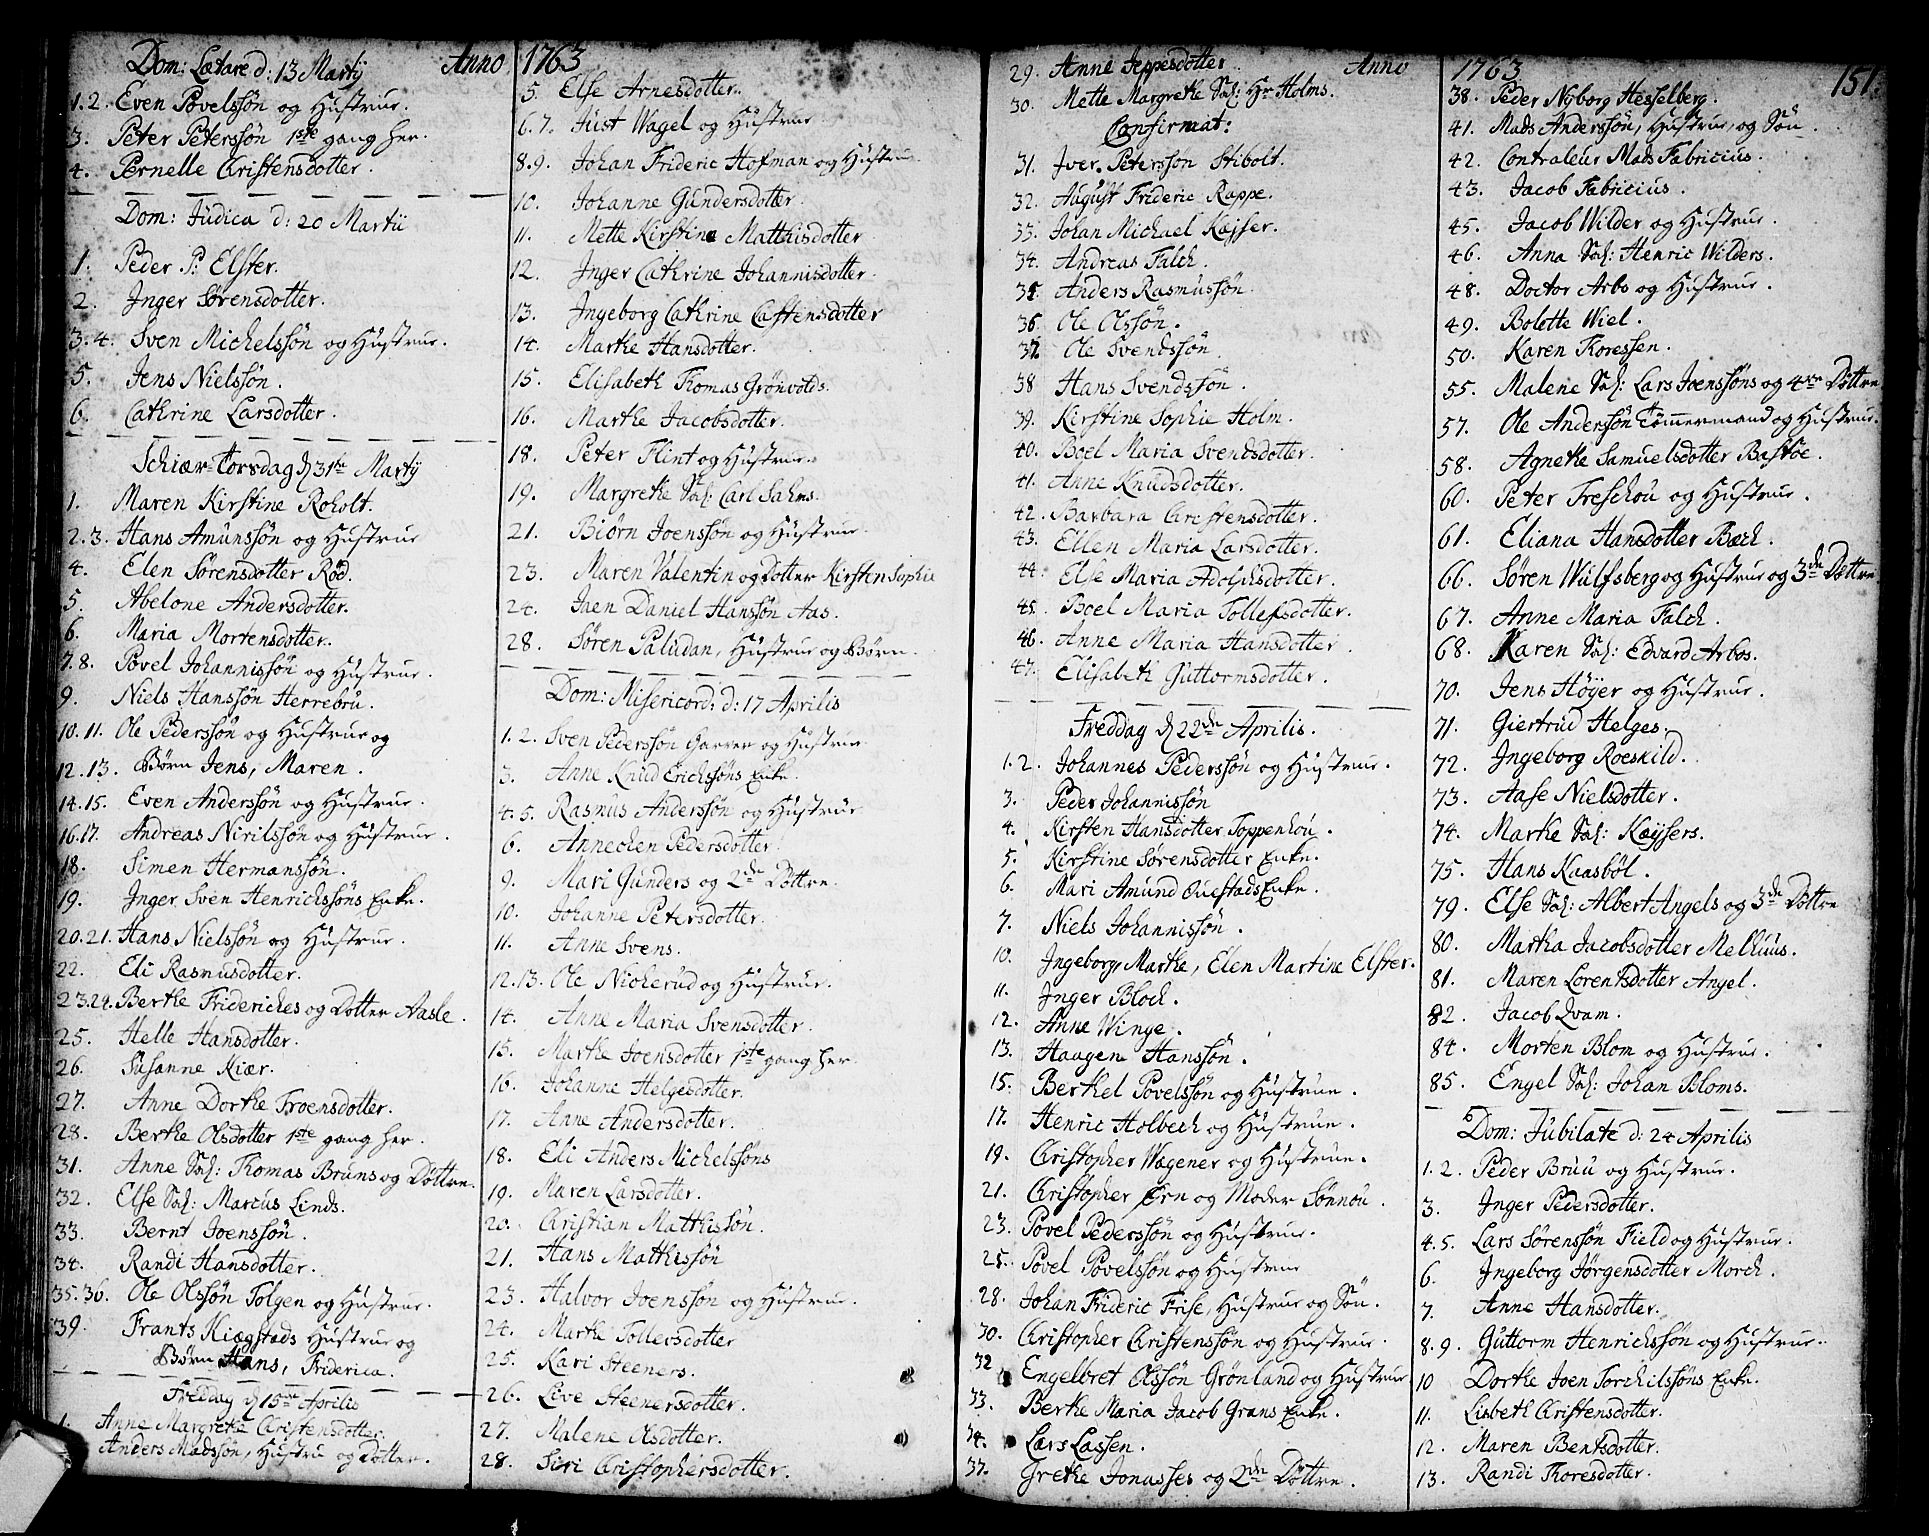 Dom: Lætare d: 13 Martÿ Anno
1.2. Even Povelssön og Hustrue.
3. Peter Peterssön 1ste gang her.
4. Pernelle Christensdotter.
Dom: Judica d: 20 Martii
1. Peder P: Elster.
2. Inger Sørensdotter.
3.4. Sven Michelssön og Hustrue.
5. Jens Nielssön.
6. Cathrine Larsdotter.
Schiær-Torsdag d 31te Martÿ
1. Maren Kirstine Roholt.
2.3. Hans Amunssön og Hustrue
4. Elen Sørensdotter Röd.
5. Abelone Andersdotter.
6. Maria Mortensdotter.
7.8. Povel Johannissön og Hustrue.
9. Niels Hanssön Herrebrü.
10.11. Ole Pederssön og Hustrue og
12.13. Börn Jens, Maren.
14.15. Even Anderssön og Hustrue.
16.17. Andreas Nirilssön og Hustrue.
18. Simen Hermanssön.
19. Inger Sven Henrichssöns Enke.
20.21. Hans Nielssön og Hustrue.
22. Eli Rasmusdotter.
23.24. Berthe Friderichs og Dotter Aasle.
25. Helle Hansdotter.
26. Susanne Kiær.
27. Anne Dorthe Troensdotter.
28. Berthe Olsdotter 1ste gang her.
31. Anne Sal: Thomas Bruns og Döttre.
32. Else Sal: Marcus Linds.
33. Bernt Joenssön.
34. Randi Hansdotter.
35.36. Ole Olssön Tolgen og Hustrue.
39. Frants Kiægstads Hustrue og
Börn Hans, Friderica.
Freddag d 15de Aprilis
1. Anne Margrethe Christensdotter.
Anders Madssön, Hustru og Dotter.
1763
5. Else Arnesdotter.
6.7. Just Wagel og Hustrue
8.9. Johan Frideric Hofman og Hustrue
10. Johanne Gundersdotter.
11. Mette Kirstine Matthisdotter
12. Inger Cathrine Johannisdotter.
13. Ingeborg Cathrine Castensdotter
14. Marthe Hansdotter.
15. Elisabeth Thomas Grönvolds.
16. Marthe Jacobsdotter.
18. Peter Flint og Hustrue.
19. Margrethe Sal: Carl Sahns.
21. Biörn Joenssön og Hustrue.
23. Maren Valentin og Dotter Kirsten Sophie
24. Jaen Daniel Hanssön Aas.
28. Sören Paludan, Hustrue og Börn.
Dom: Misericord: d: 17 Aprilis
1.2. Sven Pederssön Garver og Hustrue
3. Anne Knud Erichssöns Enke.
4.5. Rasmus Anderssön og Hustrue
6. Annechen Pedersdotter.
9. Mari Gunders og 2de Döttre.
10. Johanne Petersdotter.
11. Anne Svens.
12.13. Ole Nicherud og Hustrue.
14. Anne Maria Svensdotter.
15. Marthe Joensdotter 1ste gang her.
16. Johanne Helgesdotter.
17. Anne Andersdotter.
18. Eli Anders Michelssöns
19. Maren Larsdotter.
20. Christian Matthissön.
21. Hans Mathissön
23. Halvor Joenssön og Hustrue.
24. Marthe Tollevsdotter
25. Kari Steeners.
26. Live Steenersdotter.
27. Malene Olsdotter.
28. Siri Christophersdotter.
29. Anne Jeppesdotter Anno
30. Mette Margrethe Sal: Hr Holms.
Confirmat:
31. Iver Peterssön Stibolt.
32. August Frideric Rappe.
33. Johan Michael Kajser.
34. Andreas Falch.
35. Anders Rasmussön.
36. Ole Olssön.
37. Ole Svendssön.
38 Hans Svendssön.
39. Kirstine Sophie Holm.
40. Boel Maria Svendsdotter.
41. Anne Knudsdotter.
42. Barbara Christensdotter.
43. Ellen Maria Larsdotter.
44. Else Maria Adolphsdotter.
45. Boel Maria Tollefsdotter.
46. Anne Maria Hansdotter.
47. Elisabeth Guttormsdotter.
Freddag d 22de Aprilis.
1.2. Johannes Pederssön og Hustrue.
3. Peder Johannissön
4. Kirsten Hansdotter Toppenhou.
5. Kirstine Sørensdotter Enke.
6. Mari Amund Ouestads Enke.
7. Niels Johannissön.
10. Ingeborg, Marthe, Elen Martine Elster.
11. Inger Bloch.
12. Anne Winge.
13. Haagen Hanssön.
15. Berthel Povelssön og Hustrue.
17. Henric Holbech og Hustrue.
19. Christopher Wagener og Hustrue.
21. Christopher Ern og Moder Sönnou.
23. Povel Pederssön og Hustrue.
25. Povel Povelssön og Hustrue
28. Johan Frideric Frise, Hustrue og Sön.
30. Christopher Christenssön og Hustrue.
32 Engelbret Olssön Grönland og Hustrue
33. Berthe Maria Jacob Grans Enke.
34. Lars Lassen.
37. Grethe Jonasses og 2de Döttre.
1763 151.
38. Peder Nyborg Hesselberg.
41. Mads Anderssön, Hustrue, og Sön.
42. Contraleur Mads Fabricius.
43. Jacob Fabricius.
45. Jacob Wilder og Hustrue.
46. Anna Sal: Henric Wilders.
48. Doctor Arbo og Hustrue.
49. Bolette Wiel.
50. Karen Thoressen.
55. Malene Sal: Lars Joenssöns og 4re Döttre
57. Ole Anderssön Tömmermand og Hustrue.
58. Agnethe Samuelsdotter Bastöe.
60. Peter Treschou og Hustrue.
61. Eliana Hansdotter Bæch.
66. Søren Wulfsberg og Hustrue og 3de Döttre
67. Anne Maria Falch.
68. Karen Sal: Edvard Arbos.
70. Jens Höyer og Hustrue.
71. Giertrud Helges.
72. Ingeborg Roeskild.
73. Aase Nielsdotter.
74. Marthe Sal: Kaÿsers.
75. Hans Kaasböl.
79. Else Sal: Albert Angels og 3de Döttre
80. Martha Jacobsdotter Melhuus.
81. Maren Lorentsdotter Angel.
82. Jacob Qvam.
84. Morten Blom og Hustrue.
85. Engel Sal: Johan Bloms.
Dom: Jubilate d: 24 Aprilis
1.2. Peder Bruu og Hustrue.
3. Inger Pedersdotter.
4.5. Lars Sörenssön Field og Hustrue.
6. Ingeborg Jörgensdotter Morch.
7. Anne Hansdotter.
8.9. Guttorm Henrichssön og Hustrue.
10 Dorthe Joen Torchilssöns Enke.
11. Lisbeth Christensdotter.
12. Maren Bentsdotter.
13. Randi Thoresdotter.